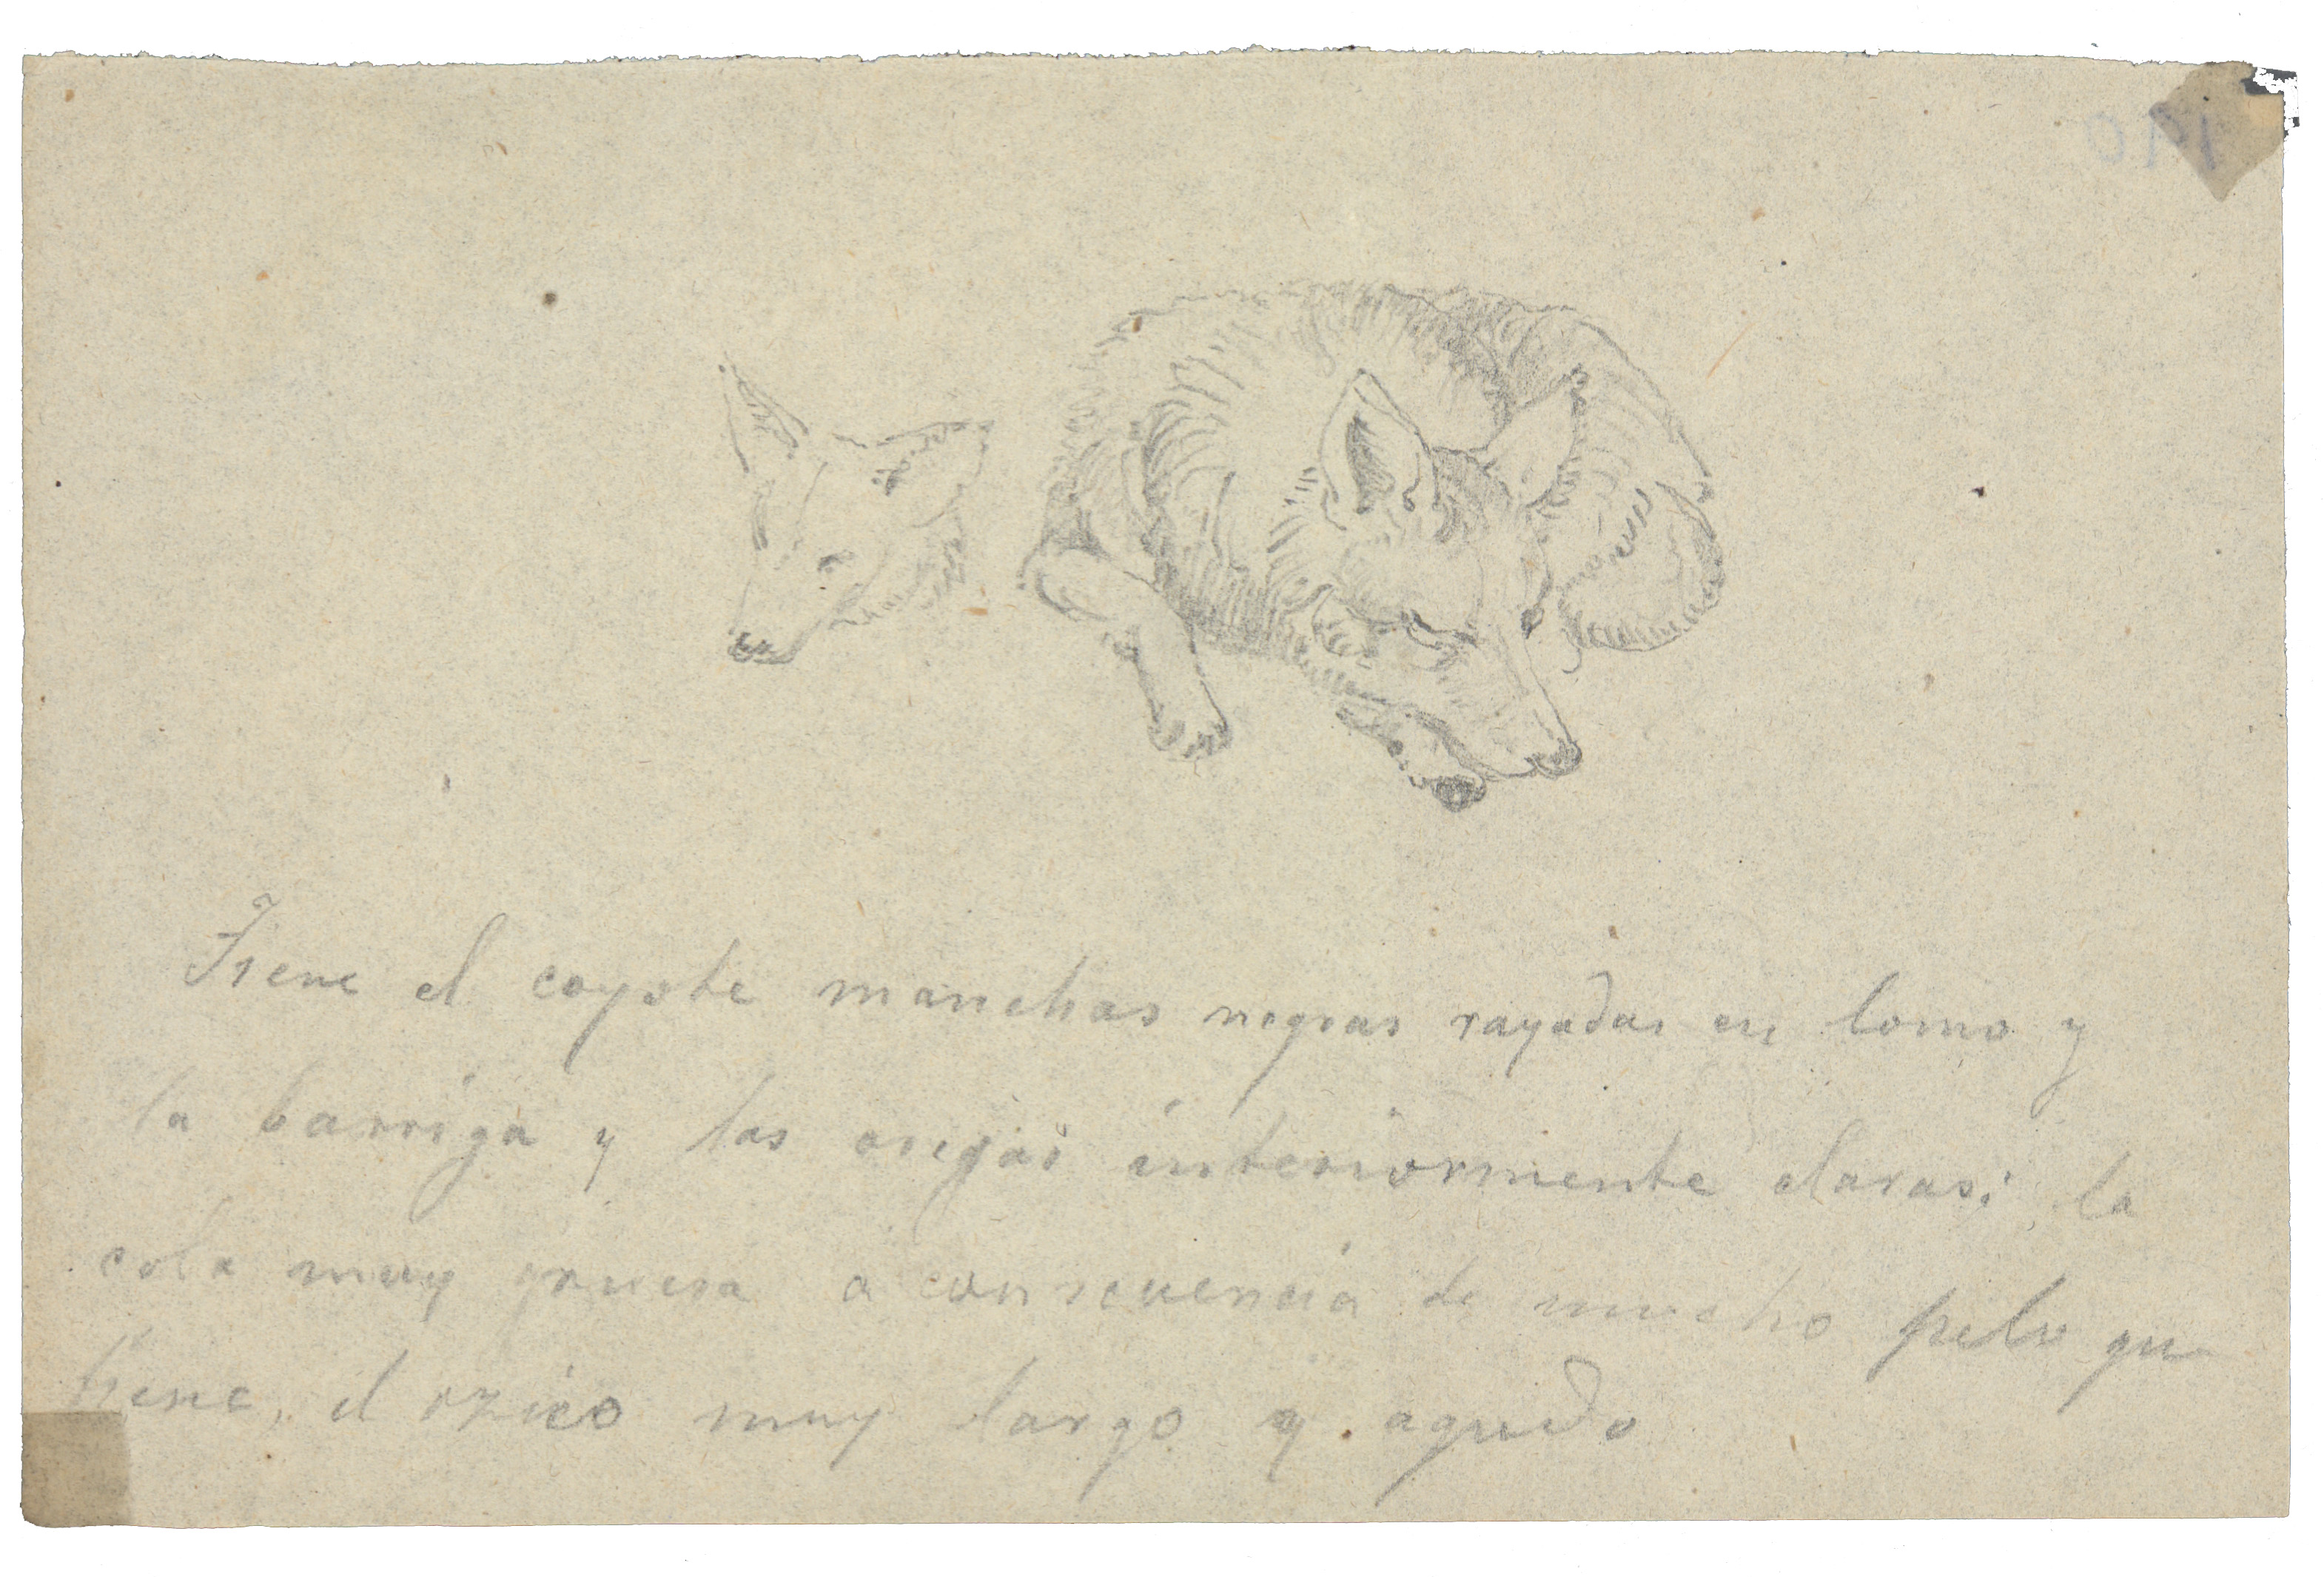 190
Tiene el coyote manchas negras rayadas en lomo y
la barriga y las orejas interiormente claras; la
cola muy gruesa a consecuencia de mucho pelo qu
tiene, el ozico muy largo y agudo